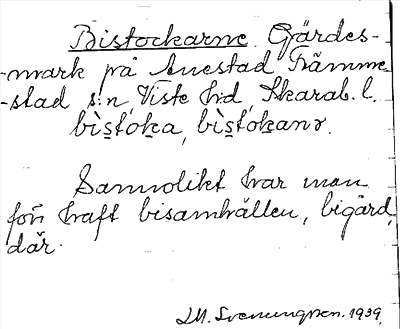 Bistockarne. Gärdes-
-mark på Anestad Främme
-stad s:n, Viste h:d, Skarab. l.
bìstoka, bìstokanr.
Sannolikt har man
förr haft bisamhällen, bigård,
där.
J.M. Svenungsen. 1939.